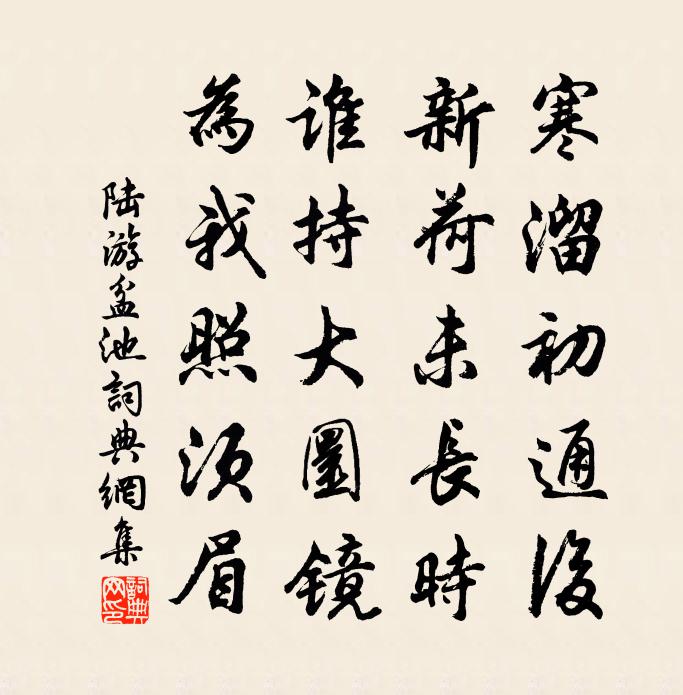 寒溜初通後
新荷未長時
誰持大圓镜
為我照須眉
陆游盆池詞典網集
詞典網印